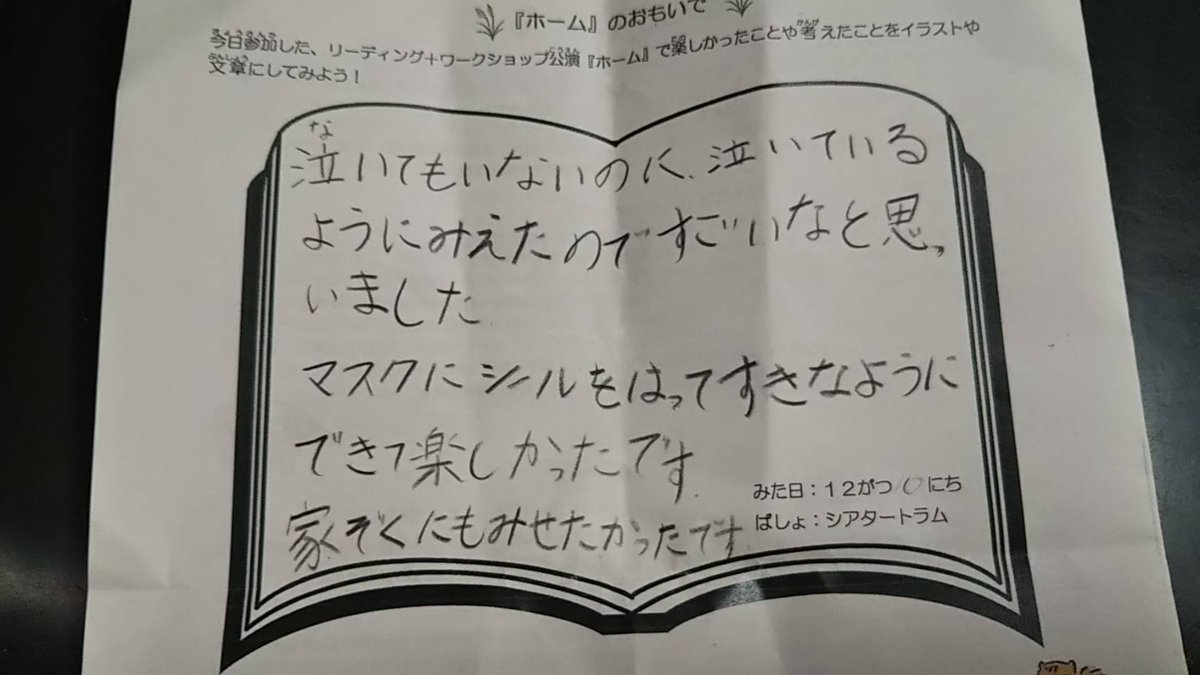 『ホーム』のおもいで
今日参加した、リーディング+ワークショップ公演『ホーム』で楽しかったことや考えたことをイラストや
文章にしてみよう！
な
泣いてもいないのに、泣いている
ようにみえたのですごいなと思
いました
マスクにシールをはってすきなように
できて楽しかったです
家ぞくにもみせたかったです
みた日：12がつ10にち
ばしょ：シアタートラム